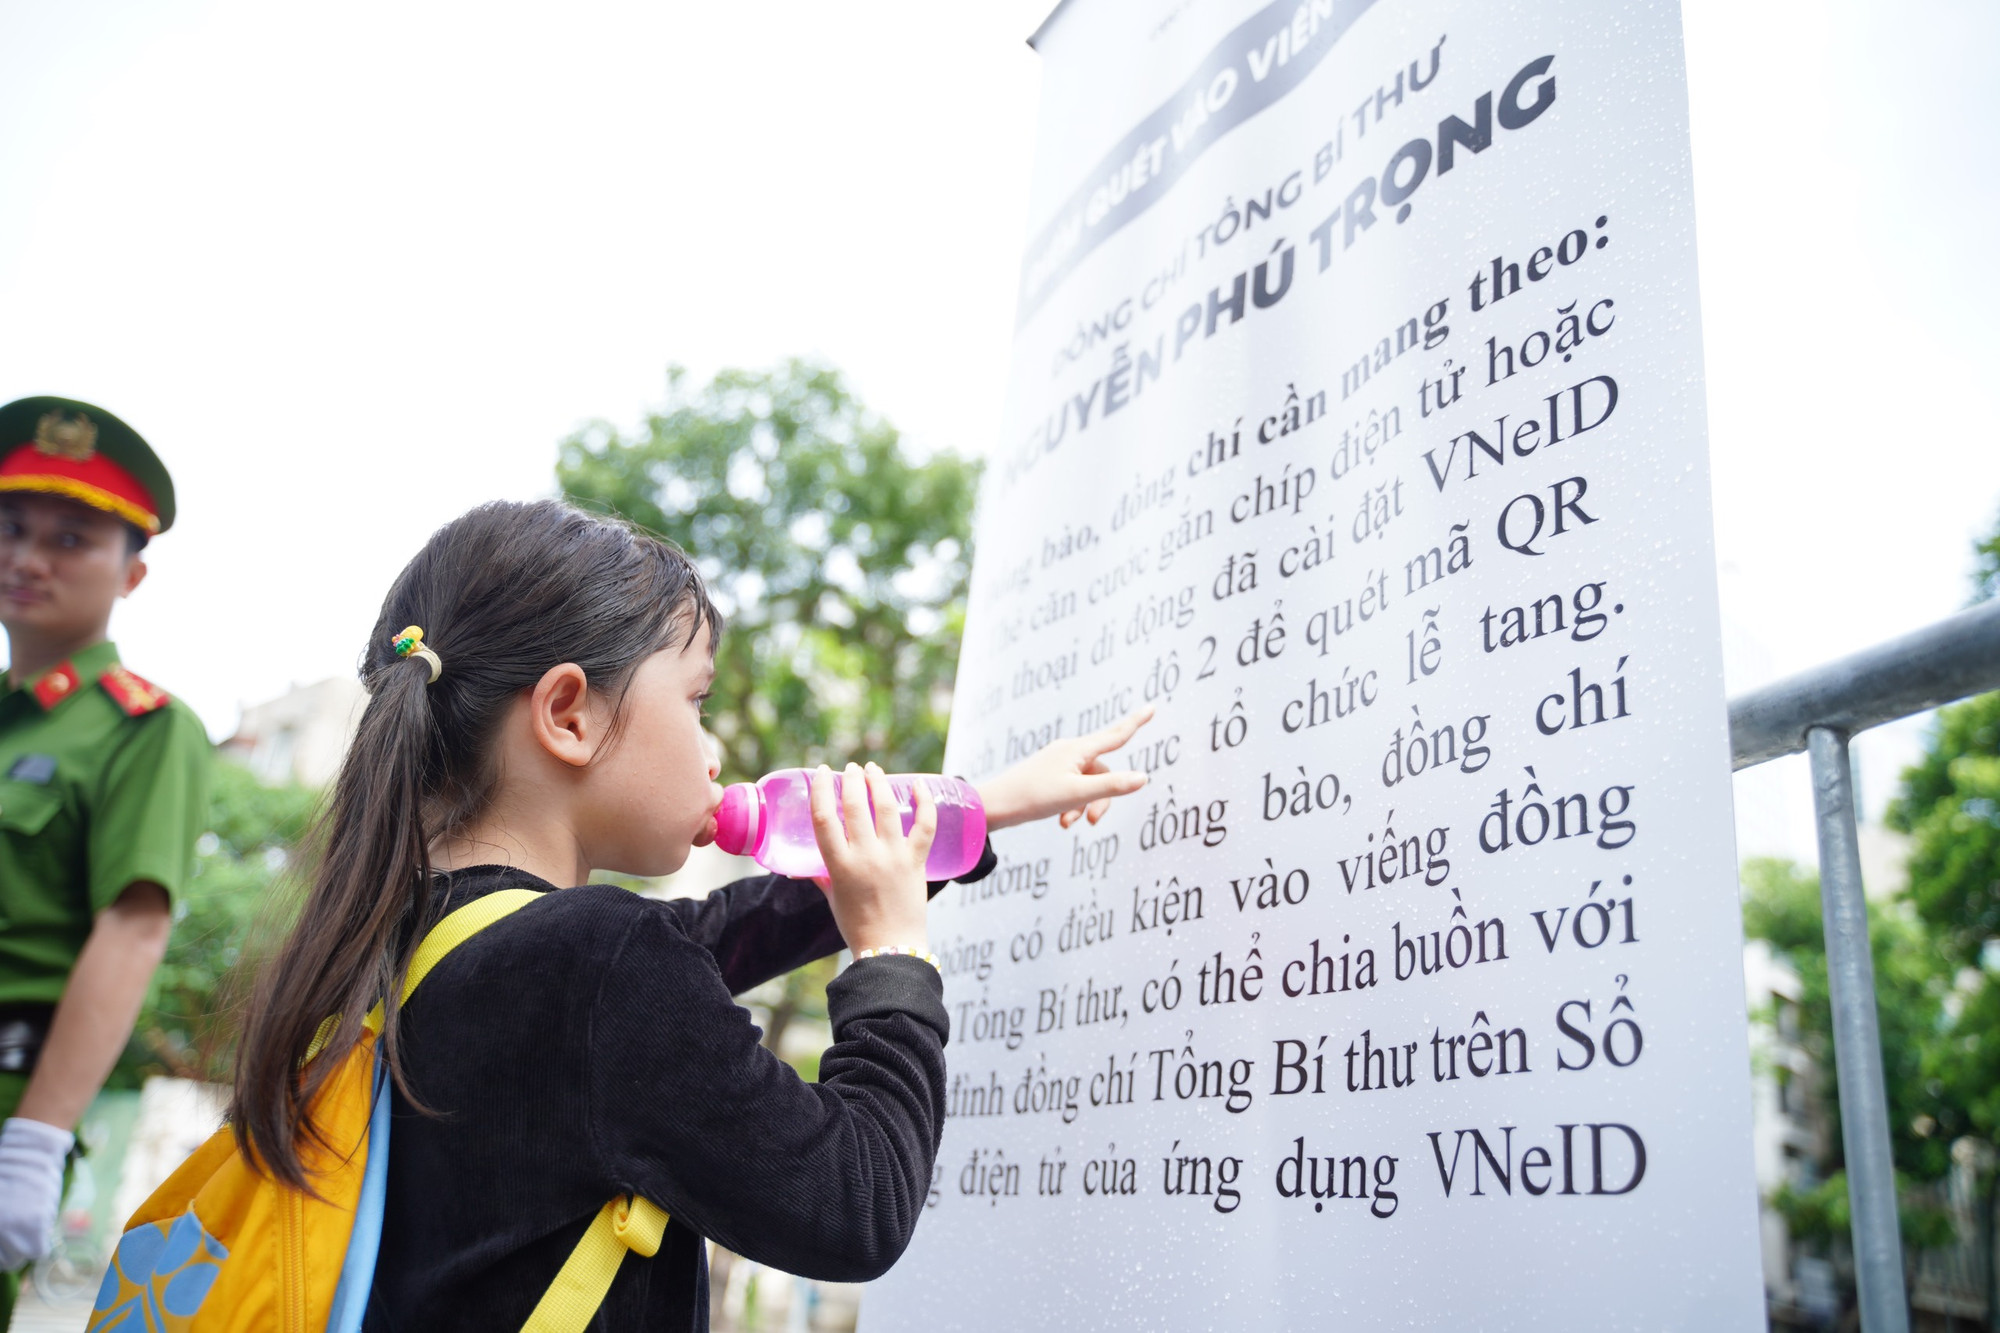 QUÉT VÀO VIẾN
ĐỒNG CHÍ TỔNG BÍ THƯ
NGUYỄN PHÚ TRỌNG
bào, đồng chí cần mang theo:
căn cước gắn chíp điện tử hoặc
thoại di động đã cài đặt VNeID
hoạt mức độ 2 để quét mã QR
vực tổ chức lễ tang.
Trường hợp đồng bào, đồng chí
không có điều kiện vào viếng đồng
Tổng Bí thư, có thể chia buồn với
đình đồng chí Tổng Bí thư trên Sổ
điện tử của ứng dụng VNeID